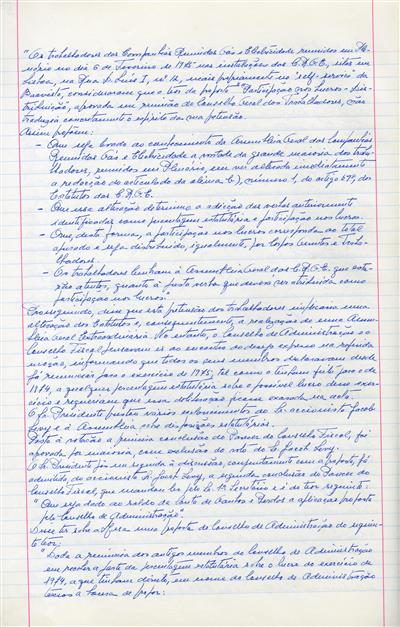 "Os trabalhadores das Companhias Reunidas Gás e Electricidade reunidos em Ple-
nário no dia 6 de Fevereiro de 1975 nas instalações das C.R.G.E., sitas em
Lisboa, na Rua D. Luís I, nº 12, mais propriamente no "self-service" da
Boavista, consideraram que o teor da proposta "Participação nos Lucros - Dis-
tribuição", aprovada em reunião do Conselho Geral dos Trabalhadores, não
traduzia concretamente o espírito da sua pretensão.
Assim propõem:
- Que seja levado ao conhecimento da Assembleia Geral das Companhias
Reunidas Gás e Electricidade a vontade da grande maioria dos traba-
lhadores, reunidos em Plenário, em ver alterada imediatamente
a redacção do articulado da alínea b), número 1, do artigo 69º, dos
Estatutos das C.R.G.E.
- Que essa alteração determine a adição das verbas anteriormente
identificadas como percentagem estatutária e participação nos lucros.
- Que, desta forma, a participação nos lucros corresponda ao total
apurado e seja distribuído, igualmente, por Corpos Gerentes e Traba-
lhadores.
- Os trabalhadores lembram à Assembleia Geral das C.R.G.E. que este-
jam atentos, quanto à justa verba que deverá ser atribuída como
participação nos lucros.
Prosseguindo, disse que esta pretensão dos trabalhadores implicaria uma
alteração dos Estatutos e, consequentemente, a realização de uma Assem-
bleia Geral Extraordinária. No entanto, o Conselho de Administração e o
Conselho Fiscal
mação, informando que todos os seus membros declaravam desde
já renunciar para o exercício de 1975, tal como o tinham feito para o de
1974, a qualquer percentagem estatutária sobre o possível lucro desse exer-
cício e requeriam que essa deliberação ficasse exarada na acta.
O Sr. Presidente prestou vários esclarecimentos ao Sr. accionista Jacob
Levy e à Assembleia sobre disposições estatutárias.
Posta à votação a primeira conclusão do Parecer do Conselho Fiscal, foi
aprovada por maioria, com exclusão do voto do Sr. Jacob Levy.
O Sr. Presidente pôs em seguida à discussão, conjuntamente com a proposta, já
admitida, do accionista Sr. Jacob Levy, a segunda conclusão do Parecer do
Conselho Fiscal, que mandou ler pelo Sr. 1º Secretário e é do teor seguinte:
"Que seja dado ao saldo da conta de Ganhos e Perdas a aplicação proposta
pelo Conselho de Administração".
Disse ter sobre a Mesa uma proposta do Conselho de Administração do seguin-
te teor:
"Dada a renúncia dos antigos membros do Conselho de Administração
em receber a parte da percentagem estatutária sobre o lucro do exercício de
1974, a que tinham direito, em nome do Conselho de Administração
temos a honra de propor: